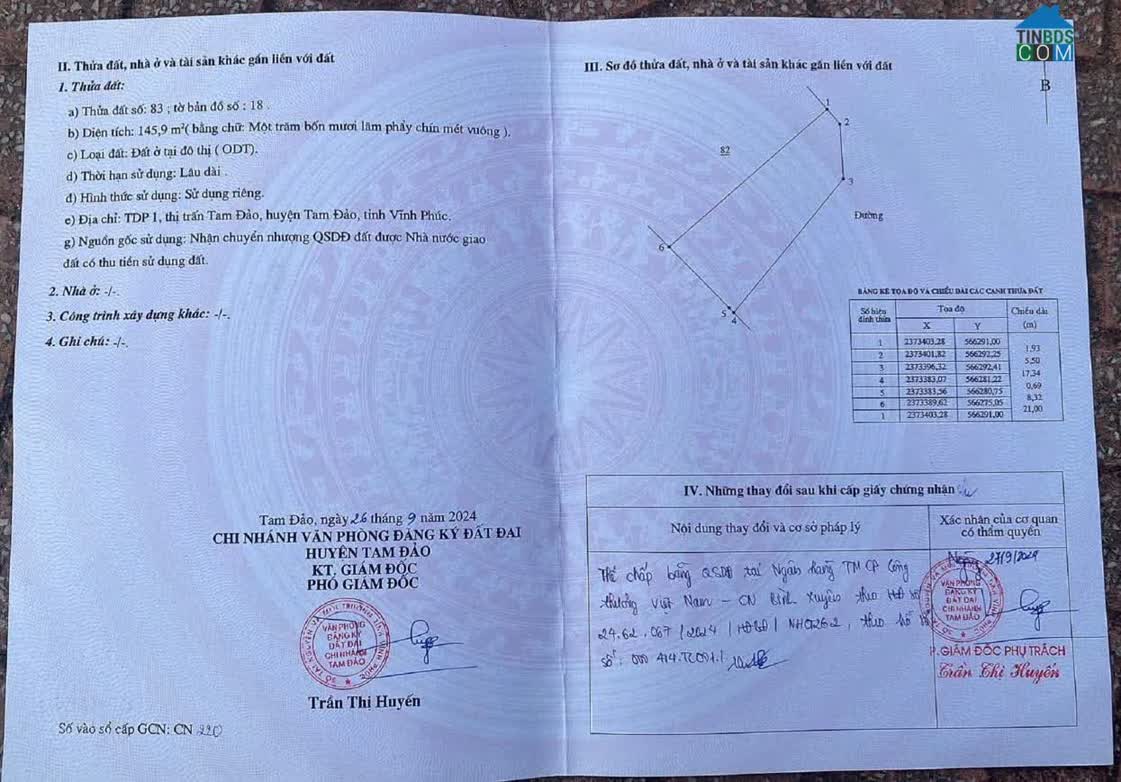 II. Thửa đất, nhà ở và tài sản khác gắn liền với đất
1. Thửa đất:
a) Thửa đất số: 83 ; tờ bản đồ số : 18 .
b) Diện tích: 145,9 m²( bằng chữ: Một trăm bốn mươi lăm phẩy chín mét vuông ).
c) Loại đất: Đất ở tại đô thị ( ODT).
d) Thời hạn sử dụng: Lâu dài .
đ) Hình thức sử dụng: Sử dụng riêng.
e) Địa chỉ: TDP 1, thị trấn Tam Đảo, huyện Tam Đảo, tỉnh Vĩnh Phúc.
g) Nguồn gốc sử dụng: Nhận chuyển nhượng QSDĐ đất được Nhà nước giao
đất có thu tiền sử dụng đất.
2. Nhà ở: -/-.
3. Công trình xây dựng khác: -/-.
4. Ghi chú: -/-.
Tam Đảo, ngày 26 tháng 9 năm 2024
CHI NHÁNH VĂN PHÒNG ĐĂNG KÝ ĐẤT ĐAI
HUYỆN TAM ĐẢO
KT, GIÁM ĐỐC
PHÓ GIÁM ĐỐC
VĂN PHÒNG
ĐĂNG KÝ
ĐẤT ĐAI
CHI NHÁNH
TAM ĐẢO
Trần Thị Huyến
Số vào sổ cấp GCN: CN 220
TINBDS
COM
III. Sơ đồ thửa đất, nhà ở và tài sản khác gắn liền với đất
B
1
2
82
3
Đường
6
5
4
BẢNG KÊ TỌA ĐỘ VÀ CHIỀU DÀI CÁC CẠNH THỬA ĐẤT
Số hiệu đỉnh thửa Tọa độ Chiều dài (m)
X Y
1 2373403,28 566291,00
1,93
2 2373401,82 566292,25
5,50
3 2373396,32 566292,41
17,34
4 2373383,07 566281,22
0,69
5 2373383,56 566280,75
8,32
6 2373389,62 566275,05
21,00
1 2373403,28 566291,00
IV. Những thay đổi sau khi cấp giấy chứng nhận
Nội dung thay đổi và cơ sở pháp lý
Xác nhận của cơ quan
có thẩm quyền
Thế chấp bằng QSDĐ tại Ngân hàng TMCP Công
thương Việt Nam - CN Bình Xuyên theo HĐ số
24.62. 067 / 2024 / HĐBĐ / , theo hồ
số:
Ngày 27/9/2024
VĂN PHÒNG
ĐĂNG KÝ
ĐẤT ĐAI
CHI NHÁNH
TAM ĐẢO
P.GIÁM ĐỐC PHỤ TRÁCH
Trần Thị Huyến